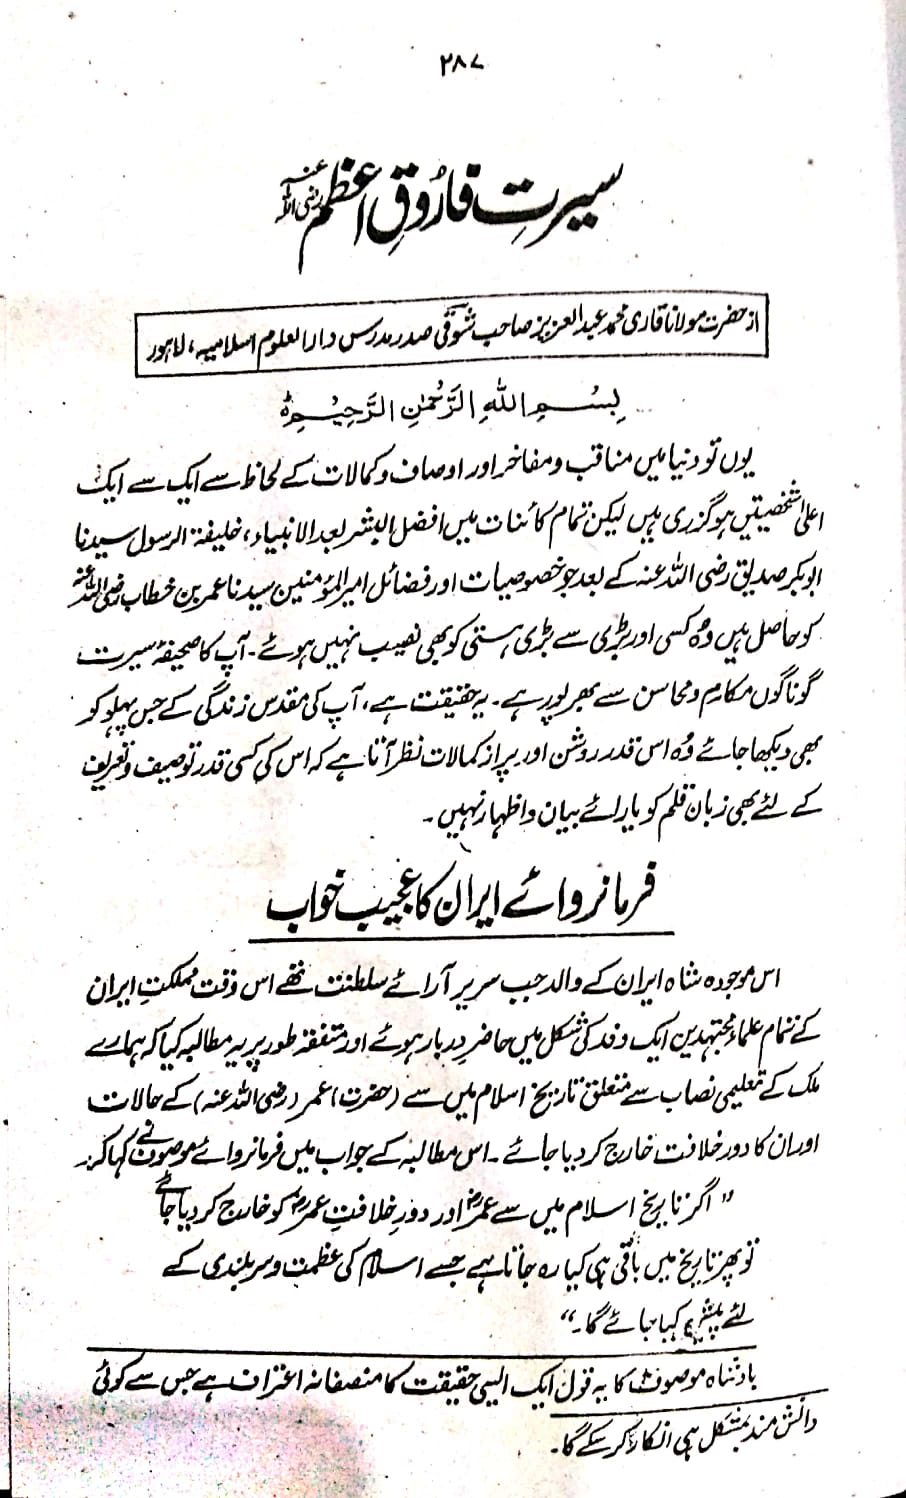 ۲۸۷
سیرتِ فاروقِ اعظم رضی اللہ عنہ
از حضرت مولانا قاری محمد عبد العزیز صاحب شوقی صدر مدرس دار العلوم اسلامیہ، لاہور
بِسْمِ اللهِ الرَّحْمٰنِ الرَّحِیْمِ ہ
یوں تو دنیا میں مناقب و مفاخر اور اوصاف و کمالات کے لحاظ سے ایک سے ایک
اعلیٰ شخصیتیں ہو گزری ہیں لیکن تمام کائنات میں افضل البشر بعد الانبیاء، خلیفۃ الرسول سیدنا
ابوبکر صدیق رضی اللہ عنہ کے بعد جو خصوصیات اور فضائل امیر المؤمنین سیدنا عمر بن خطاب رضی اللہ عنہ
کو حاصل ہیں وُہ کسی اور بڑی سے بڑی ہستی کو بھی نصیب نہیں ہوئے۔ آپ کا صحیفۂ سیرت
گوناگوں مکارم و محاسن سے بھر پور ہے۔ یہ حقیقت ہے، آپ کی مقدس زندگی کے جس پہلو کو
بھی دیکھا جائے وُہ اس قدر روشن اور پر از کمالات نظر آتا ہے کہ اس کی کسی قدر توصیف و تعریف
کے لئے بھی زبان قلم کو یارائے بیان و اظہار نہیں۔
فرمانروائے ایران کا عجیب خواب
اس موجودہ شاہ ایران کے والد جب سریر آرائے سلطنت تھے اس وقت مملکتِ ایران
کے تمام علماء مجتہدین ایک وفد کی شکل میں حاضر دربار ہوئے اور متفقہ طور پر یہ مطالبہ کیا کہ ہمارے
ملک کے تعلیمی نصاب سے متعلق تاریخ اسلام میں سے (حضرت) عمر (رضی اللہ عنہ) کے حالات
اور ان کا دور خلافت خارج کر دیا جائے۔ اس مطالبہ کے جواب میں فرمانروائے موصوف نے کہا کہ:
"اگر تاریخ اسلام میں سے عمرؓ اور دورِ خلافتِ عمرؓ کو خارج کر دیا جائے
تو پھر تاریخ میں باقی ہی کیا رہ جاتا ہے جسے اسلام کی عظمت و سربلندی کے
لئے پیش کیا جائے گا۔"
بادشاہ موصوف کا یہ قول ایک ایسی حقیقت کا منصفانہ اعتراف ہے جس سے کوئی
دانش مند بمشکل ہی انکار کر سکے گا۔